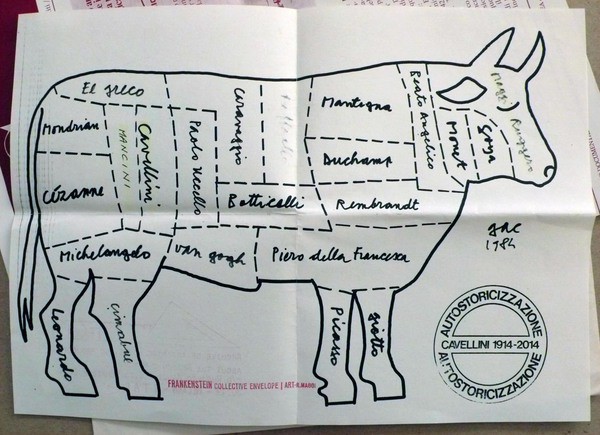 El greco
Mondrian
MANCINI
Cavellini
Paolo Uccello
Caravaggio
Raffaello
Mantegna
Beato Angelico
Monet
Goya
Maggi
Ruggero
Duchamp
Cézanne
Botticelli
Rembrandt
Michelangelo
van gogh
Piero della Francesca
Leonardo
cimabue
Picasso
giotto
gac
1984
AUTOSTORICIZZAZIONE
CAVELLINI 1914-2014
AUTOSTORICIZZAZIONE
FRANKENSTEIN COLLECTIVE ENVELOPE | ART-R.MAGGI